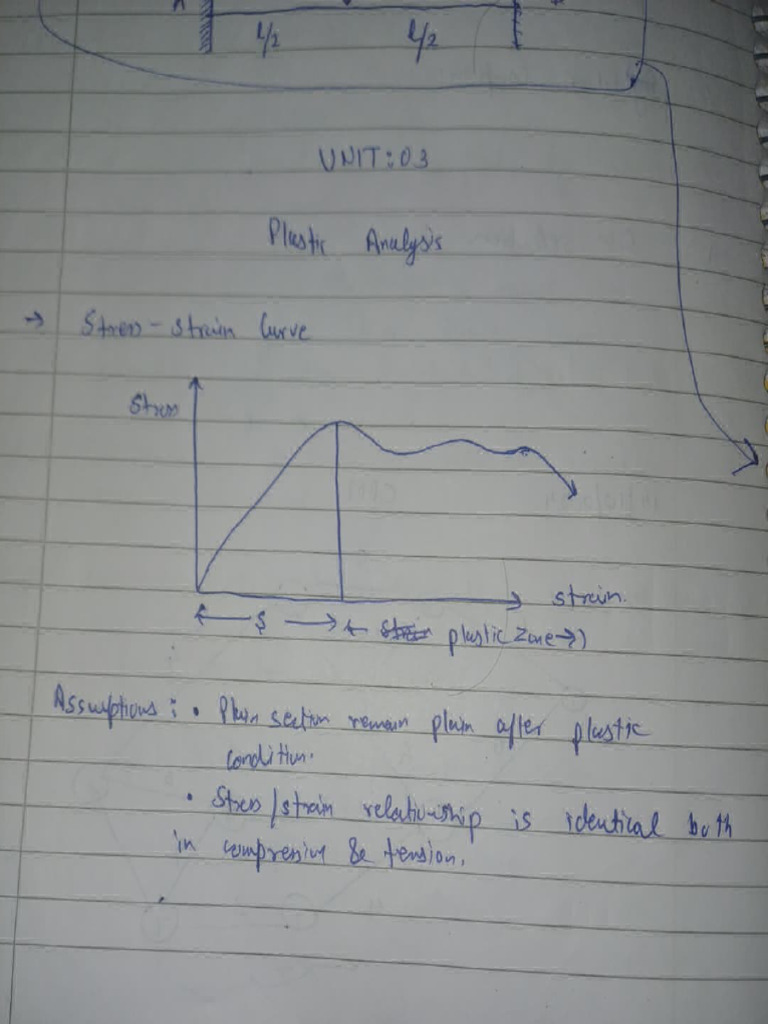 A
l/2 l/2
UNIT:03
Plastic Analysis
→ Stress-strain Curve
Stress
strain.
plastic zone
Assumptions: • Plain section remain plain after plastic
condition.
• Stress/strain relationship is identical both
in compressive & tension.